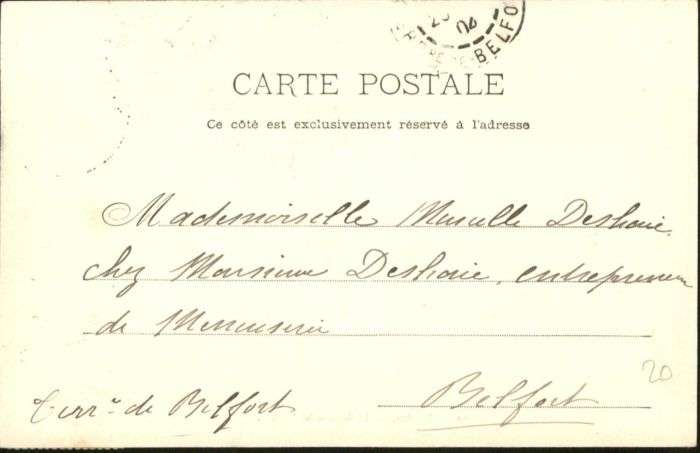 04
BELFO
CARTE POSTALE
Ce côté est exclusivement réservé à l'adresse
Mademoiselle Marcelle Deshaie
chez Monsieur Deshaie, entrepreneur
de Menuiserie
20
Terre de Belfort
Belfort